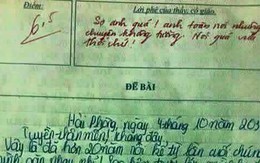 Điểm:
Lời phê của thầy, cô giáo.
6,5
Sợ anh quá! anh toàn nói những
chuyện không tưởng. Nói quá vừa
thôi chứ!
ĐỀ BÀI
Hải Phòng, ngày 4 tháng 10 năm 203
Tuyển thân mến!
Vậy là đã hơn 20 năm nơi kể từ lần cuối chúng